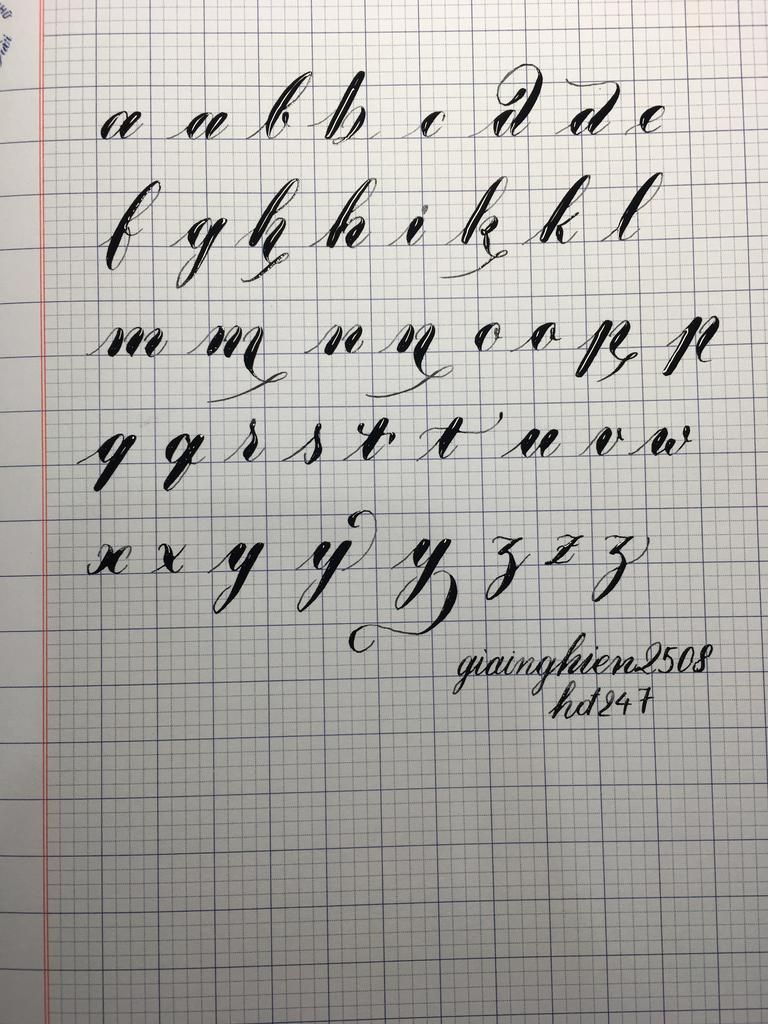 a a b b c d d e
f g h h i k k l
m m n n o o p p
q q r s t t u v w
x x y y y z z z
giainghien2508
hdt247